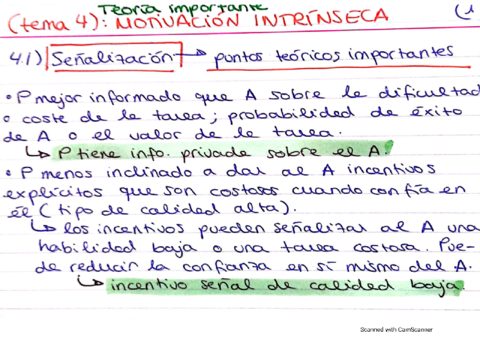 Teoría importante
(tema 4): MOTIVACIÓN INTRÍNSECA (1
4.1) Señalización → puntos teóricos importantes
• P mejor informado que A sobre la dificultad
o coste de la tarea; probabilidad de éxito
de A o el valor de la tarea.
↳ P tiene info. privada sobre el A.
• P menos inclinado a dar al A incentivos
explícitos que son costosos cuando confía en
él (tipo de calidad alta).
↳ los incentivos pueden señalizar al A una
habilidad baja o una tarea costosa. Pue-
de reducir la confianza en sí mismo del A.
↳ incentivo señal de calidad baja.
Scanned with CamScanner